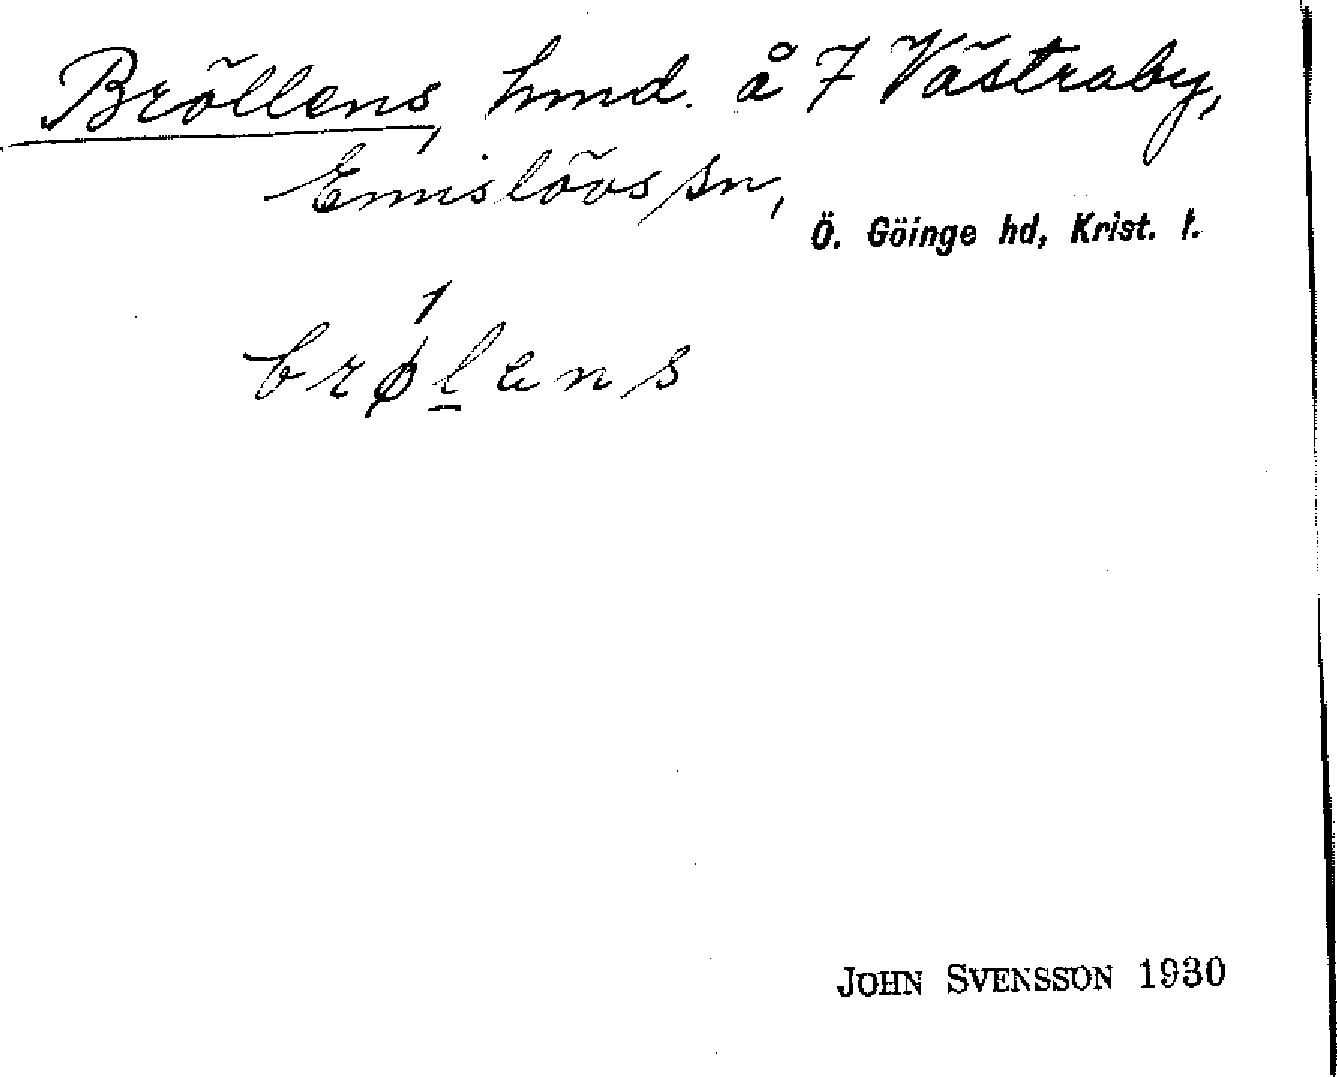 Bröllens, hmd. å 7 Västraby,
Emislövs sn,
Ö. Göinge hd, Krist. l.
1
brøl̲ens
JOHN SVENSSON 1930